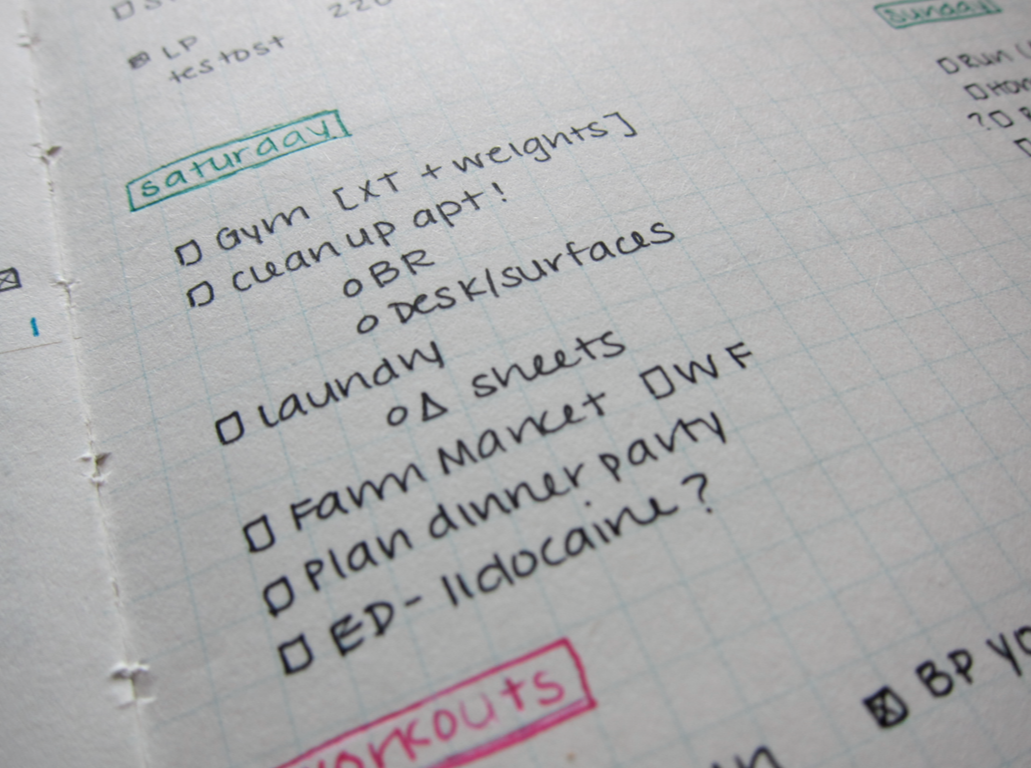 LP
testost
saturday
Gym [XT + weights]
clean up apt!
BR
Desk/surfaces
laundry
Δ sheets
Farm Market □ WF
Plan dinner party
ED - lidocaine?
workouts
sunday
Run
BP